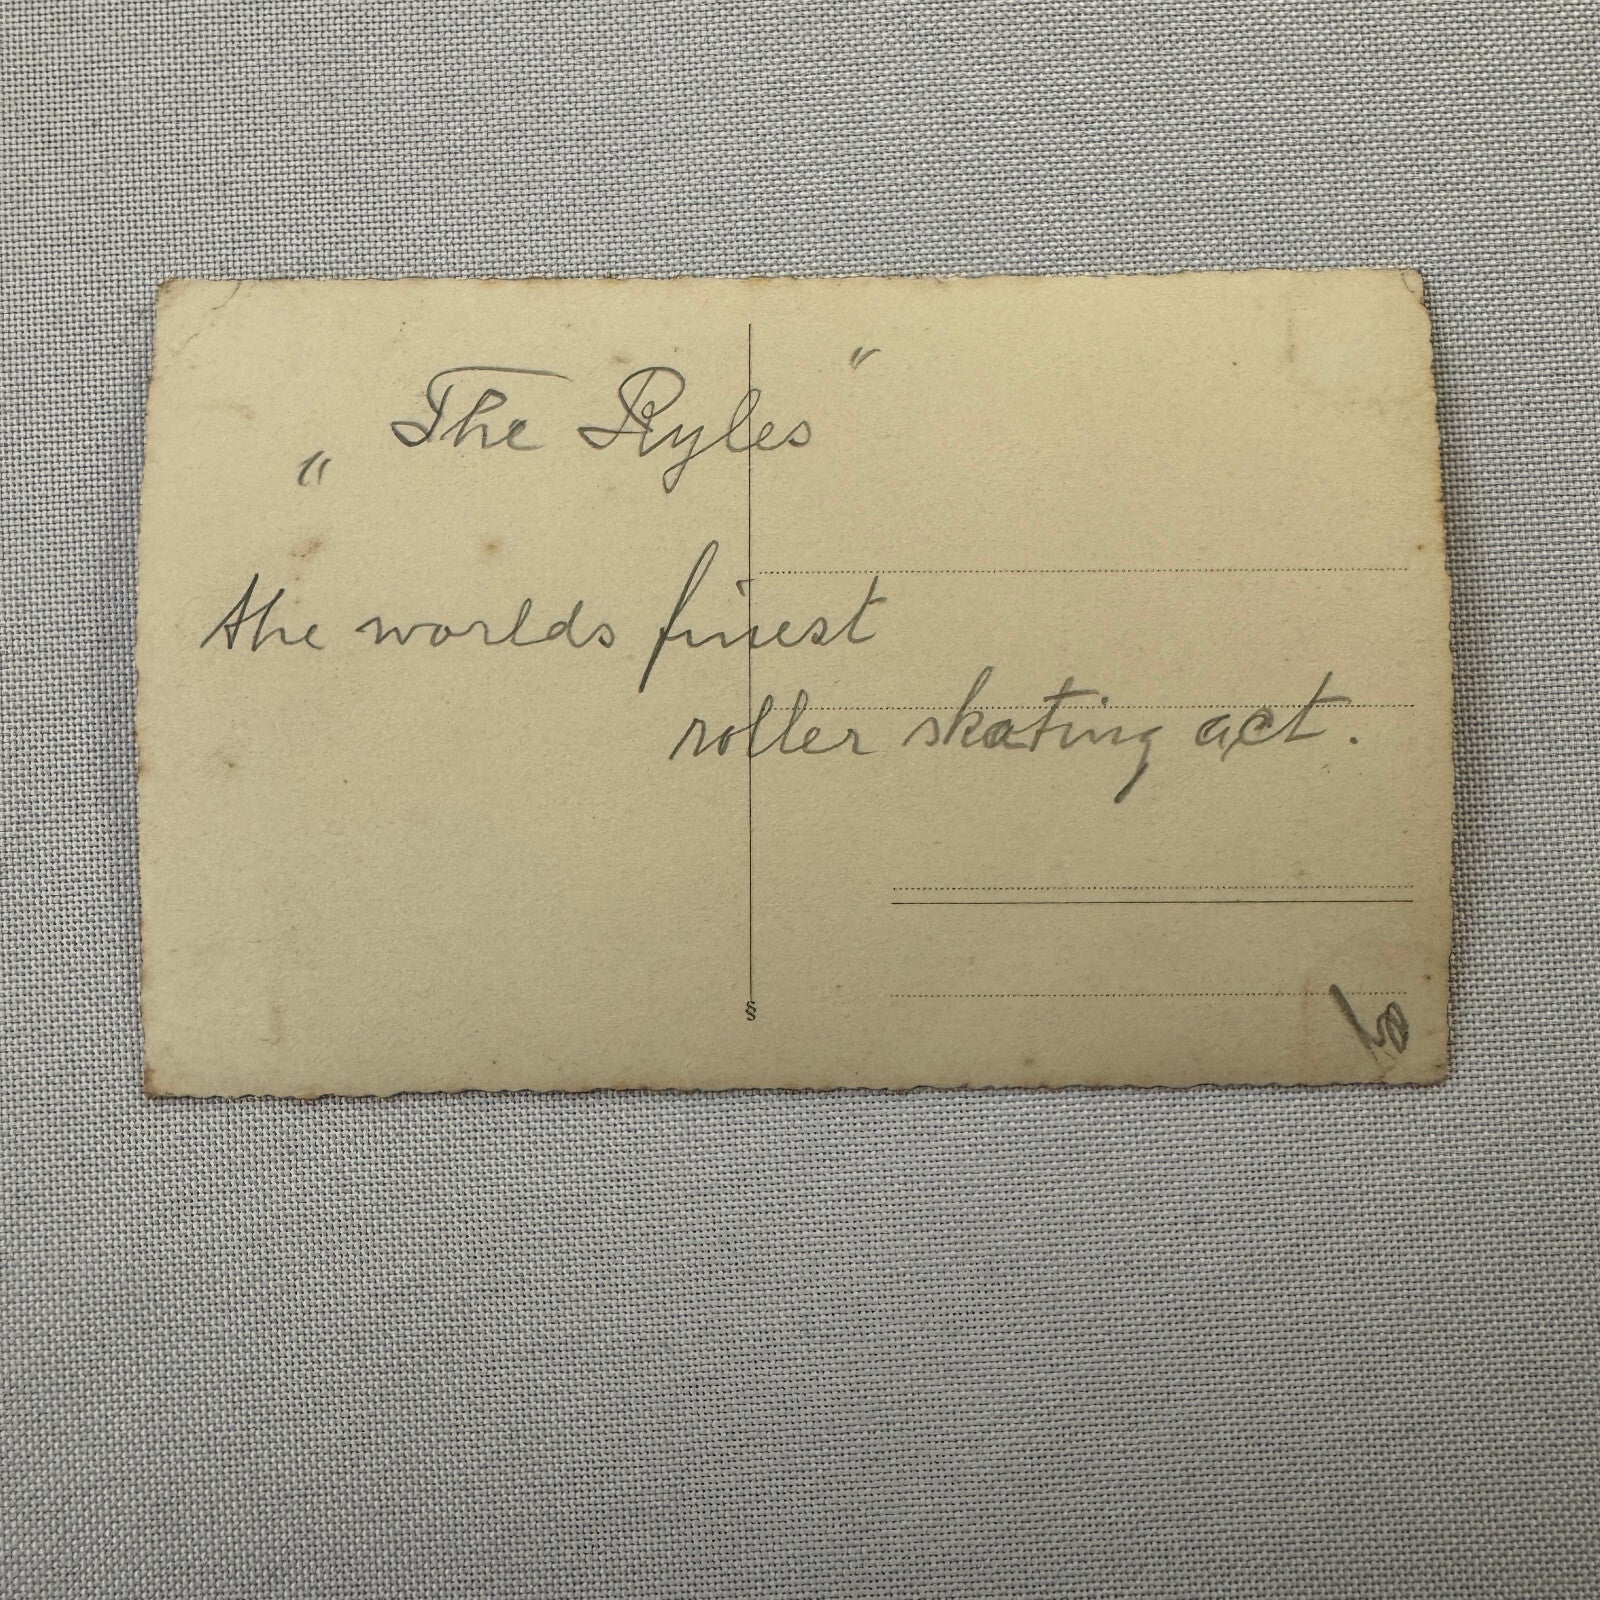 "The Ryles"
the worlds finest
roller skating act.
§